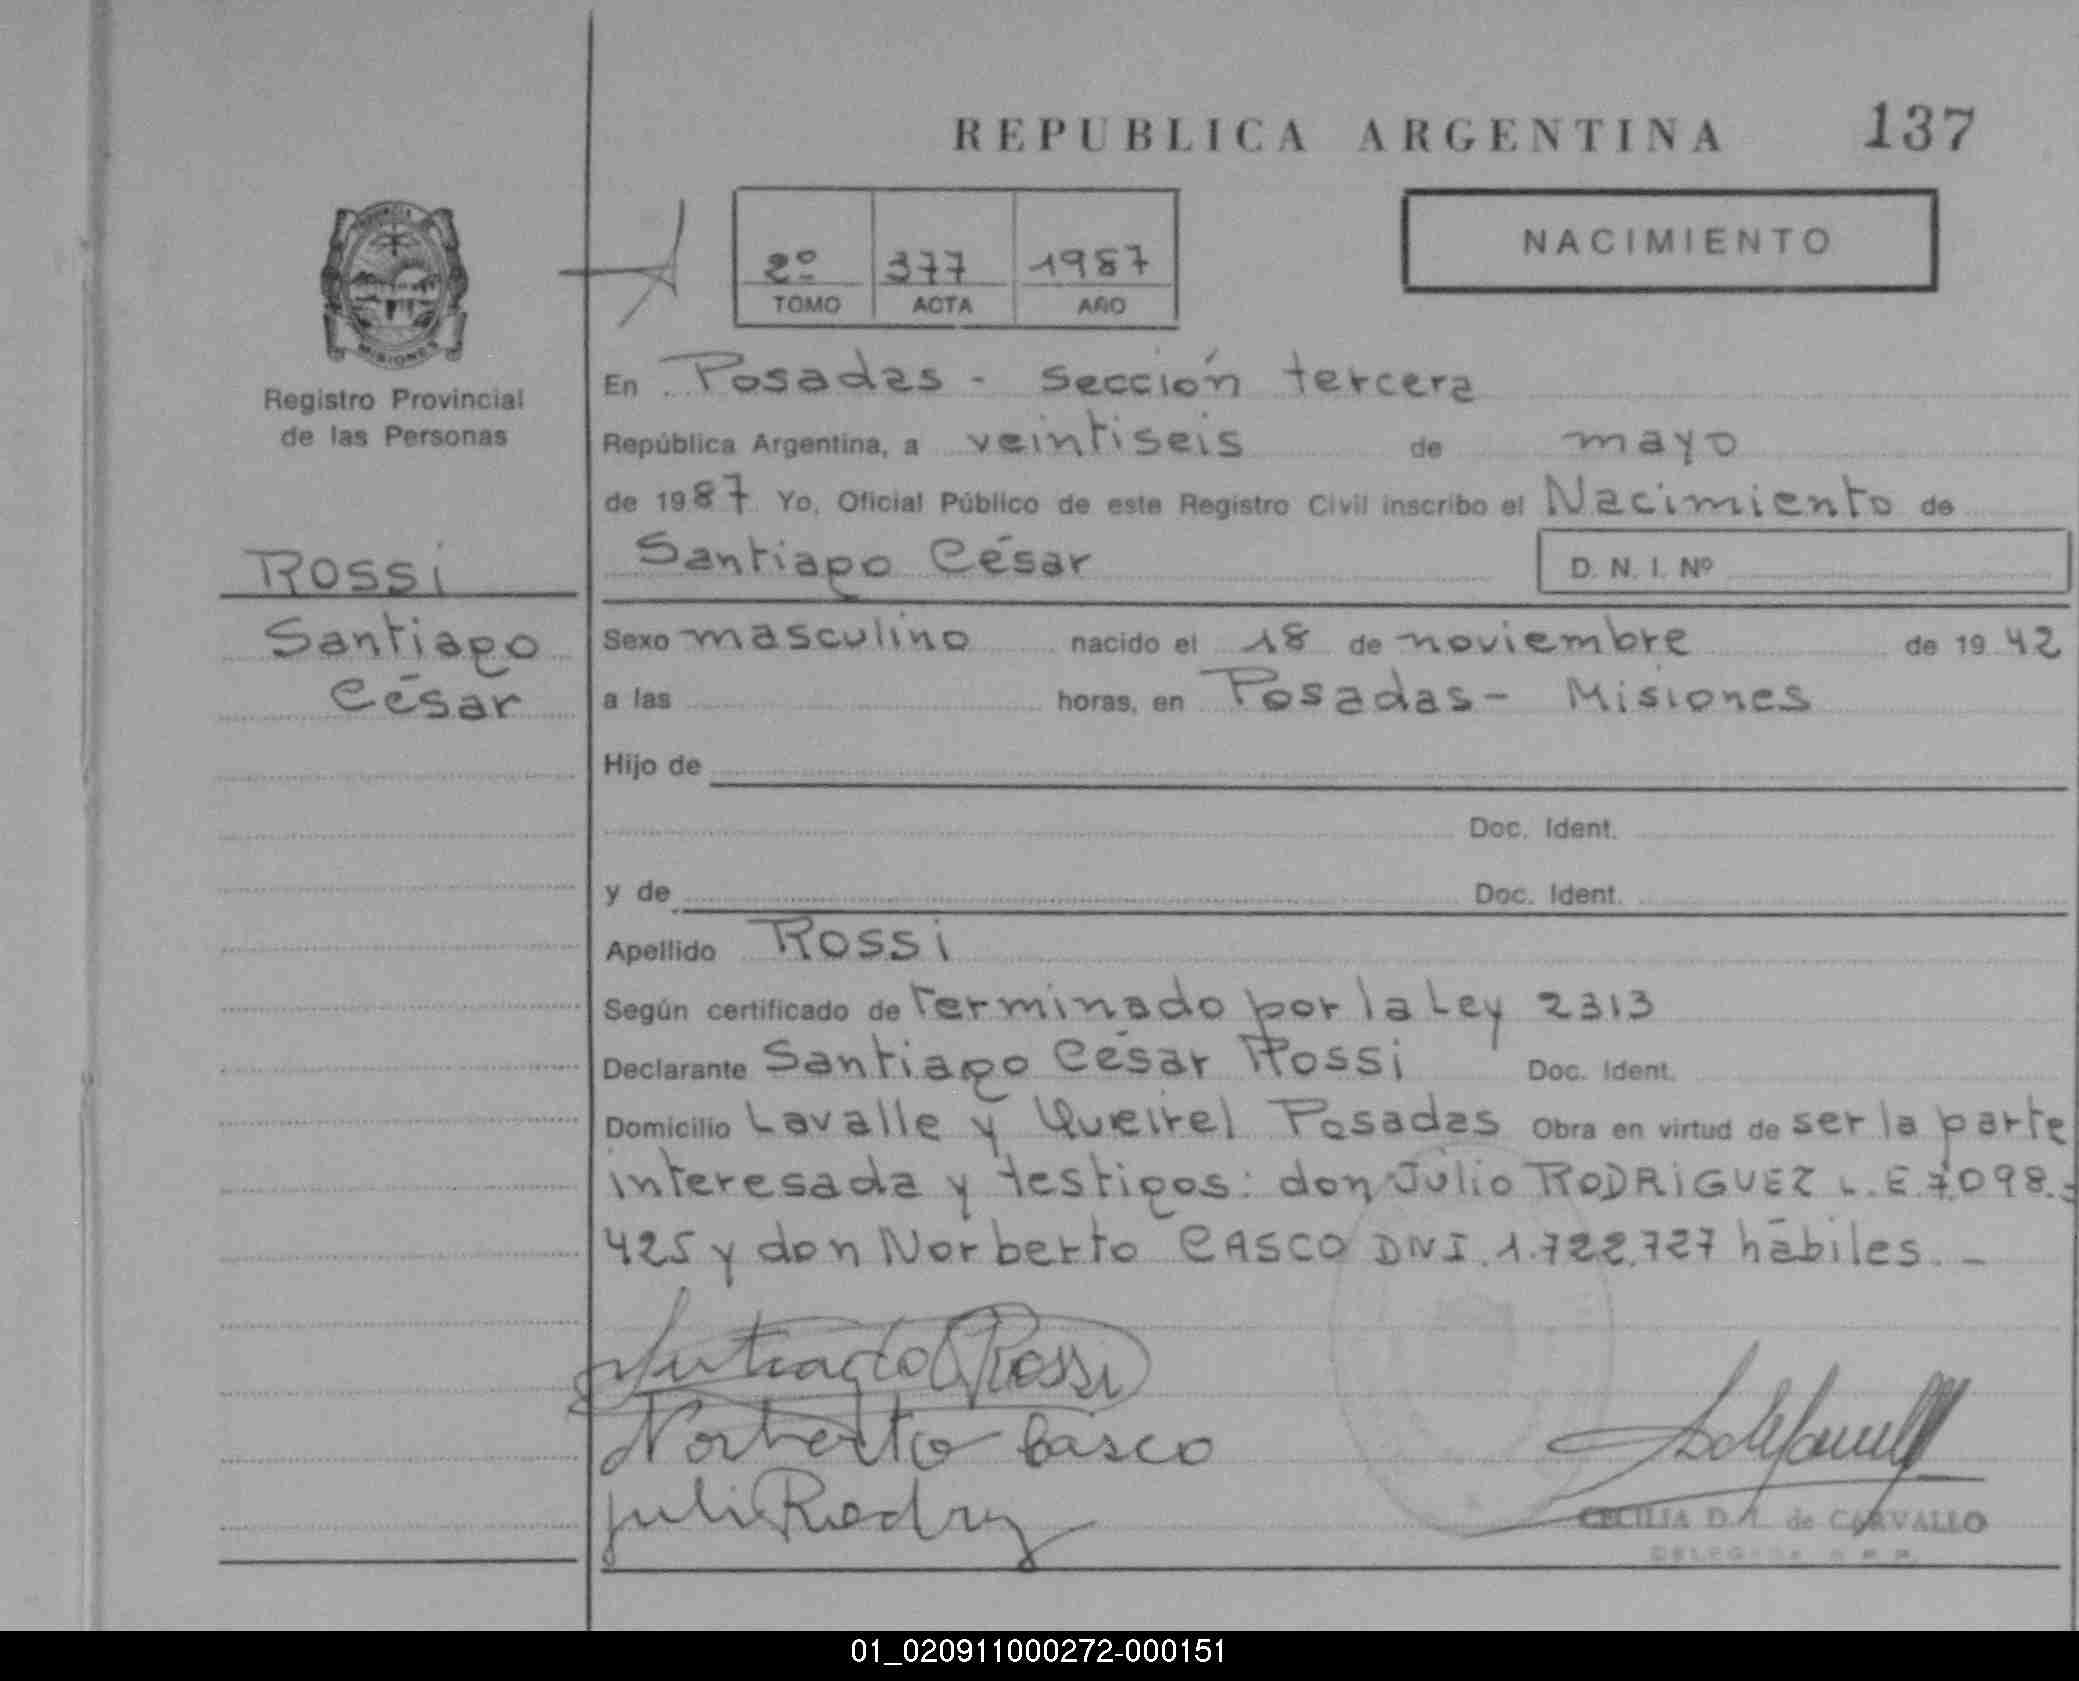 REPUBLICA ARGENTINA 137
PROVINCIA
MISIONES
Registro Provincial
de las Personas
2º 377 1987
TOMO ACTA AÑO
NACIMIENTO
En Posadas - sección tercera
República Argentina, a veintiseis de mayo
de 1987 Yo, Oficial Público de este Registro Civil inscribo el Nacimiento de
Santiago César D. N. I. Nº
Rossi
Santiago
César
Sexo masculino nacido el 18 de noviembre de 1942
a las horas, en Posadas - Misiones
Hijo de
Doc. Ident.
y de Doc. Ident.
Apellido Rossi
Según certificado de terminado por la Ley 2313
Declarante Santiago César Rossi Doc. Ident.
Domicilio Lavalle y Queirel Posadas Obra en virtud de ser la parte
interesada y testigos: don Julio RODRIGUEZ L.E. 7.098.-
425 y don Norberto CASCO DNI. 1.722.727 hábiles. -
Santiago C Rossi
Norberto Casco
Juli Rodrz
CECILIA D. A. de CARVALLO
DELEGADA R. P. P.
01_020911000272-000151